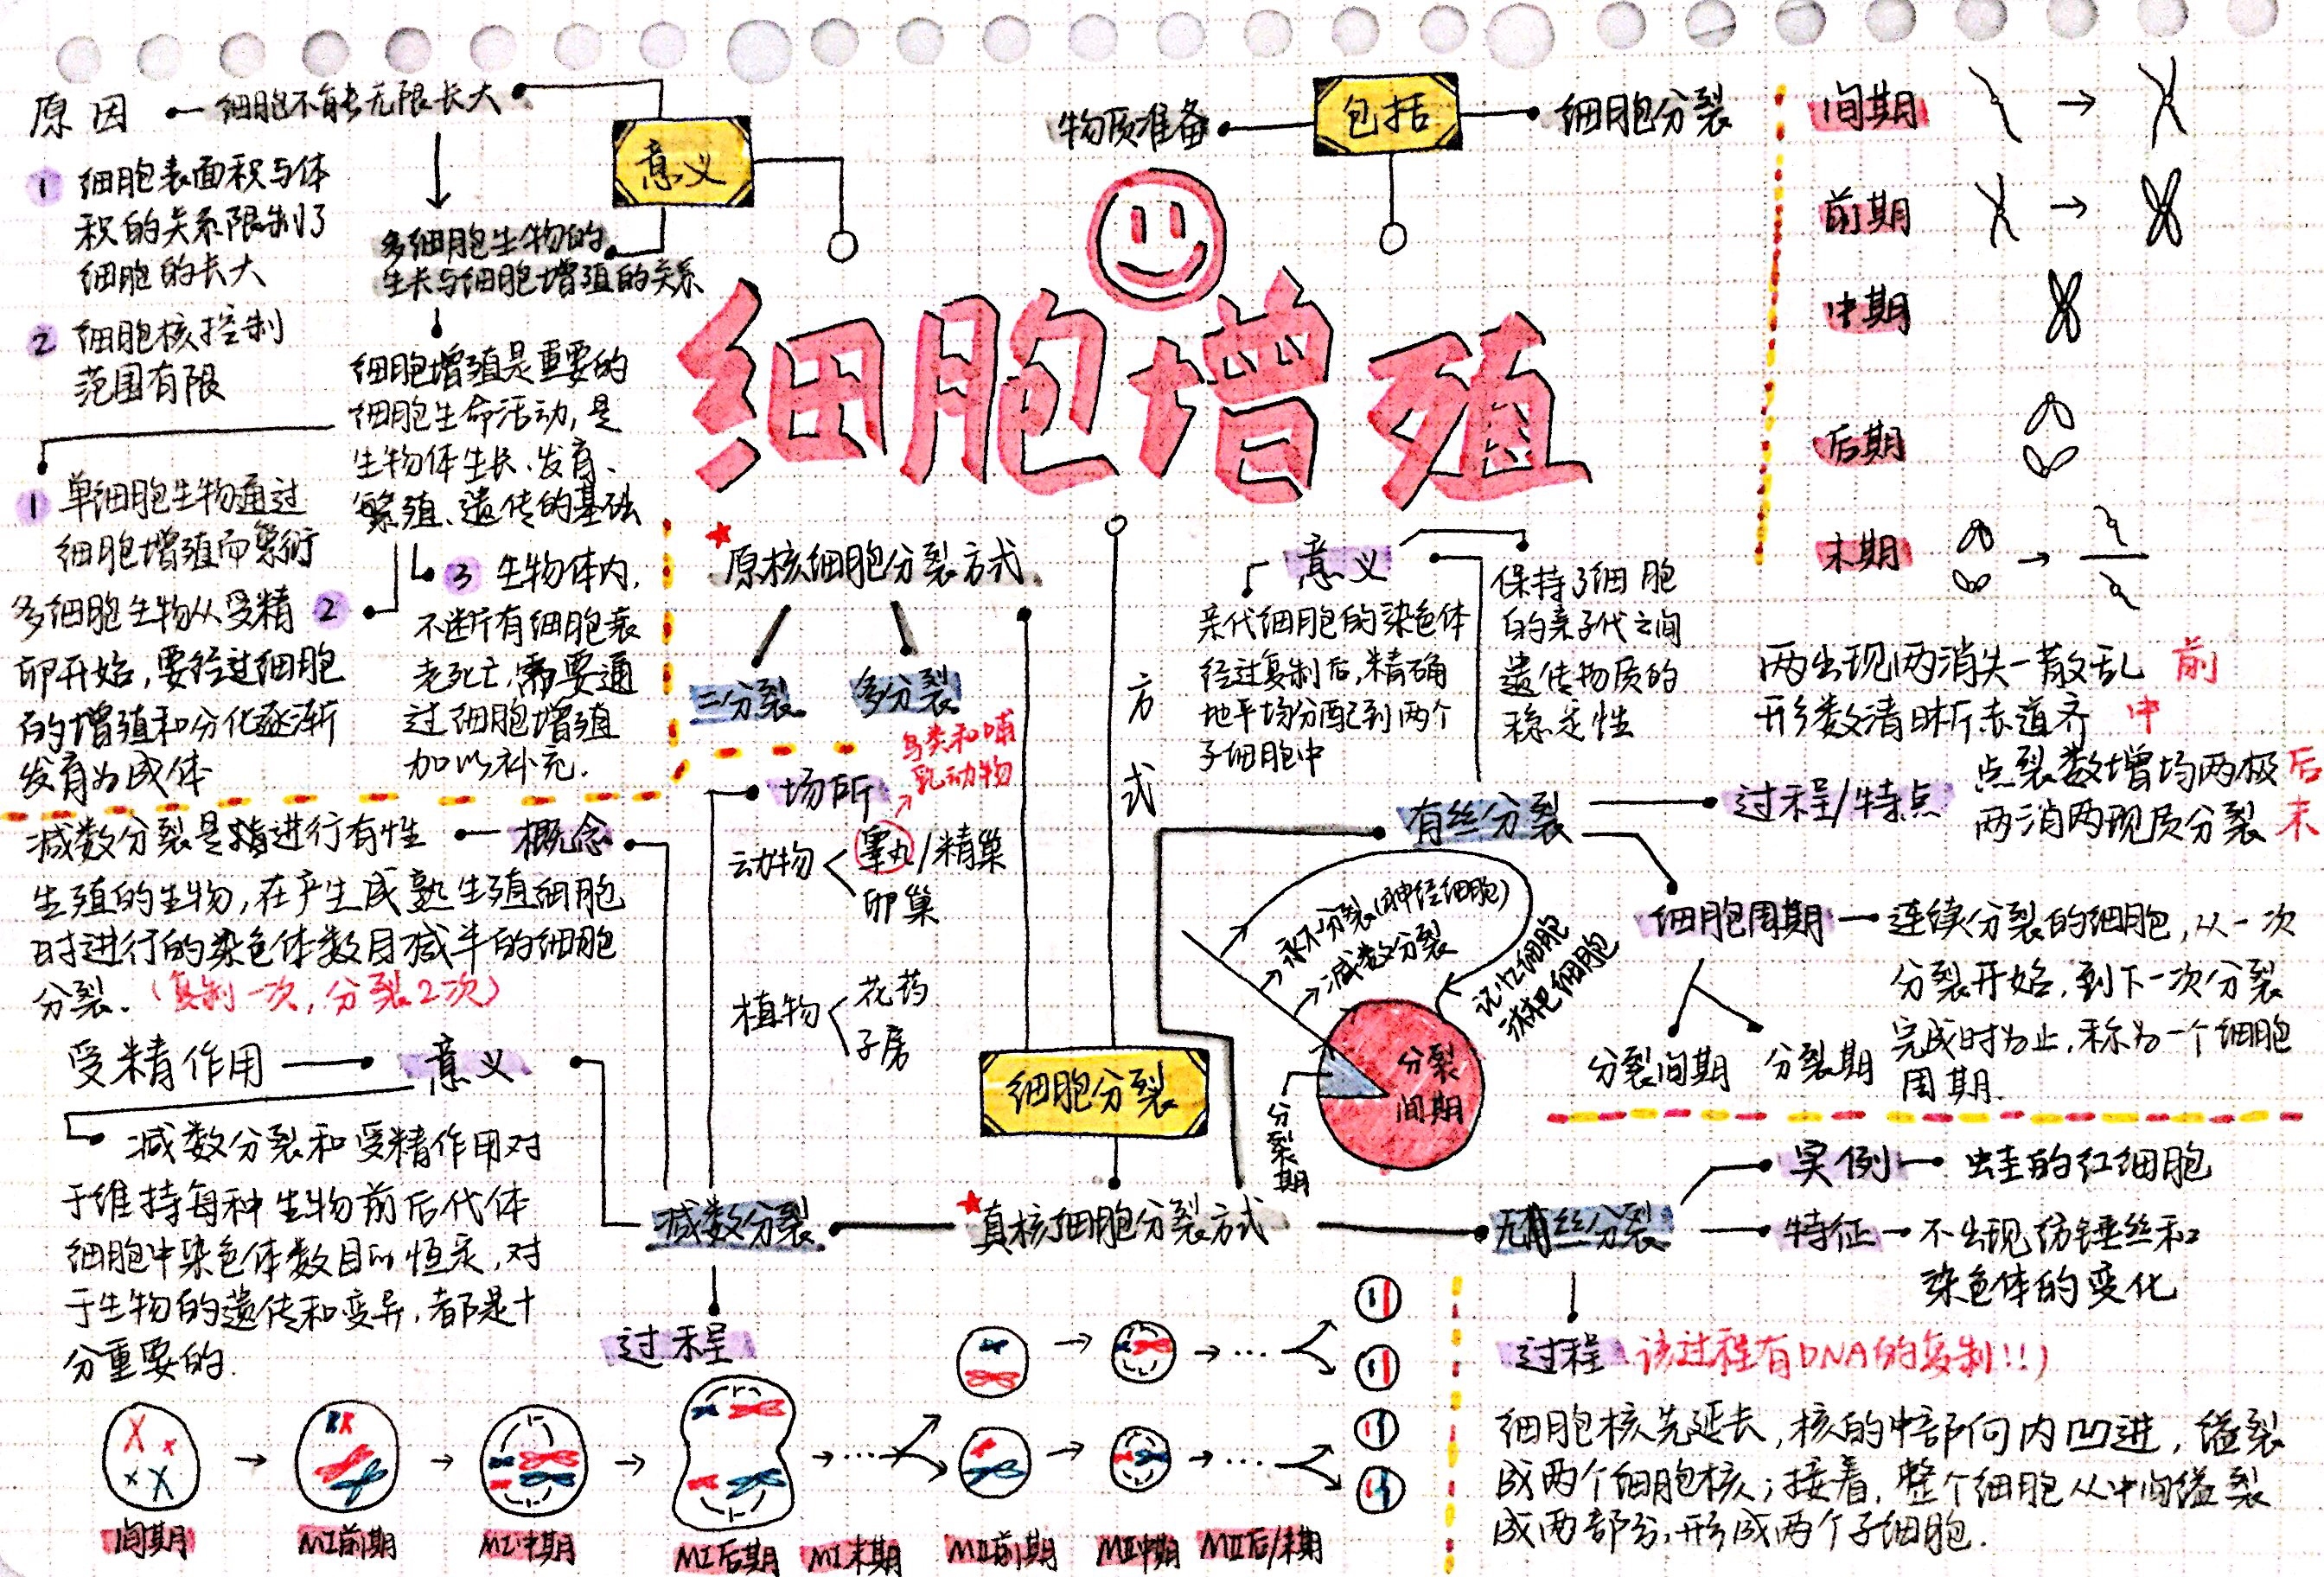 原因
细胞不能无限长大
1 细胞表面积与体
积的关系限制了
细胞的长大
2 细胞核控制
范围有限
意义
多细胞生物的
生长与细胞增殖的关系
细胞增殖是重要的
细胞生命活动,是
生物体生长、发育、
繁殖、遗传的基础
1 单细胞生物通过
细胞增殖而繁衍
多细胞生物从受精 2
卵开始,要经过细胞
的增殖和分化逐渐
发育为成体
3 生物体内,
不断有细胞衰
老死亡,需要通
过细胞增殖
加以补充.
物质准备
包括
细胞分裂
细胞增殖
间期
前期
中期
后期
末期
原核细胞分裂方式
二分裂
多分裂
方式
意义
亲代细胞的染色体
经过复制后,精确
地平均分配到两个
子细胞中
保持了细胞
的亲子代之间
遗传物质的
稳定性
两出现两消失一散乱 前
形数清晰赤道齐 中
点裂数增均两极 后
两消两现质分裂 末
有丝分裂
过程/特点
细胞周期
连续分裂的细胞,从一次
分裂开始,到下一次分裂
完成时为止,称为一个细胞
周期.
分裂间期
分裂期
永不分裂(神经细胞)
减数分裂
记忆细胞
淋巴细胞
分裂
间期
分裂期
场所
鸟类和哺
乳动物
动物
睾丸/精巢
卵巢
植物
花药
子房
概念
减数分裂是指进行有性
生殖的生物,在产生成熟生殖细胞
时进行的染色体数目减半的细胞
分裂.(复制一次,分裂2次)
受精作用
意义
减数分裂和受精作用对
于维持每种生物前后代体
细胞中染色体数目的恒定,对
于生物的遗传和变异,都是十
分重要的.
细胞分裂
减数分裂
真核细胞分裂方式
无丝分裂
实例
蛙的红细胞
特征
不出现纺锤丝和
染色体的变化
过程
过程 该过程有DNA的复制!!)
细胞核先延长,核的中部向内凹进,缢裂
成两个细胞核;接着,整个细胞从中间缢裂
成两部分,形成两个子细胞.
间期
MI前期
MI中期
MI后期
MI末期
MII前期
MII中期
MII后/末期